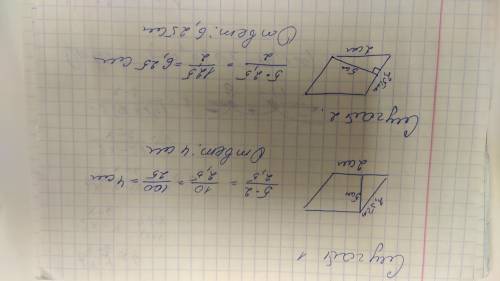 Случай 1
2см
5см
2,5см
5·2/2,5 = 10/2,5 = 100/25 = 4 см
Ответ: 4 см
Случай 2.
2см
5см
2,5см
5·2,5/2 = 12,5/2 = 6,25 см
Ответ: 6,25 см